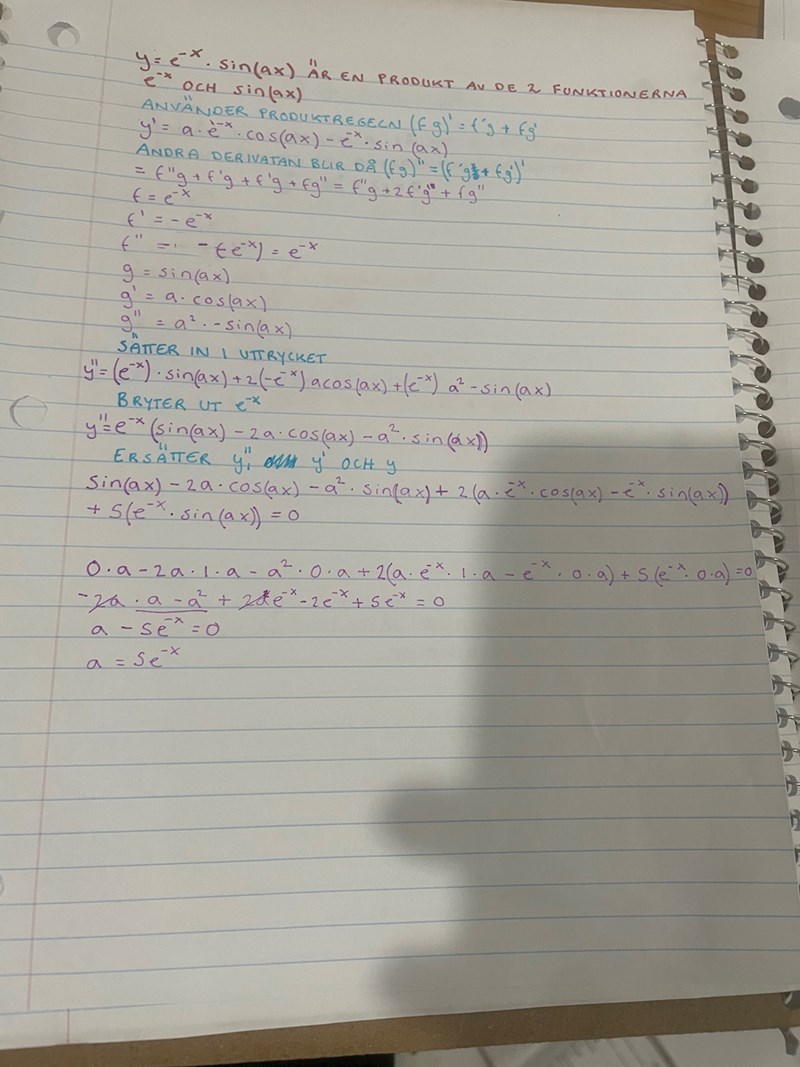 y = e^-x · sin(ax) ÄR EN PRODUKT AV DE 2 FUNKTIONERNA
e^-x OCH sin(ax)
ANVÄNDER PRODUKTREGELN (f g)' = f'g + fg'
y' = a · e^-x · cos(ax) - e^-x · sin(ax)
ANDRA DERIVATAN BLIR DÅ (fg)'' = (f'g + fg')'
= f''g + f'g + f'g + fg'' = f''g + 2f'g'' + fg''
f = e^-x
f' = -e^-x
f'' = -(-e^-x) = e^-x
g = sin(ax)
g' = a · cos(ax)
g'' = a² · -sin(ax)
SÄTTER IN I UTTRYCKET
y'' = (e^-x) · sin(ax) + 2(-e^-x) a cos(ax) + (e^-x) a² - sin(ax)
BRYTER UT e^-x
y'' = e^-x (sin(ax) - 2a · cos(ax) - a² · sin(ax))
ERSÄTTER y'', y' OCH y
Sin(ax) - 2a · cos(ax) - a² · sin(ax) + 2(a · e^-x · cos(ax) - e^-x · sin(ax))
+ 5(e^-x · sin(ax)) = 0
0 · a - 2a · 1 · a - a² · 0 · a + 2(a · e^-x · 1 · a - e^-x · 0 · a) + 5(e^-x · 0 · a) = 0
-2a · a - a² + 2e^-x - 2e^-x + 5e^-x = 0
a - 5e^-x = 0
a = 5e^-x